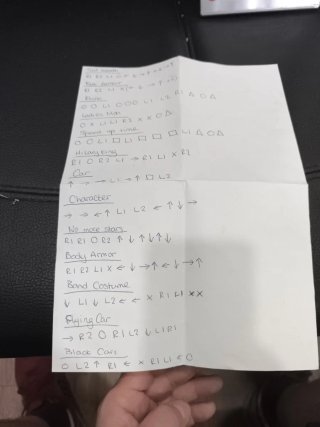 R1 R2 L1
O O L1 O O O L1 L2 R1 △ O △
O X L1 R1 R2 X X O △
Speed up time
O O L1 □ L1 □ □ □ L1 △ O △
R1 O R2 L1 → R1 L1 X R2
Car
↑ → → L1 → ↑ □ L2
Character
→ → ← ↑ L1 L2 ← ↑ ↓ →
No more stars
R1 R1 O R2 ↑ ↓ ↑ ↓ ↑ ↓
Body Armor
R1 R2 L1 X ← ↓ → ↑ ← ↓ → ↑
Bond Costume
↓ L1 ↓ L2 ← ← X R1 L1 X X
Flying Car
→ R2 O R1 L2 ↓ L1 R1
Black Cars
O L2 ↑ R1 ← X R1 L1 ← O